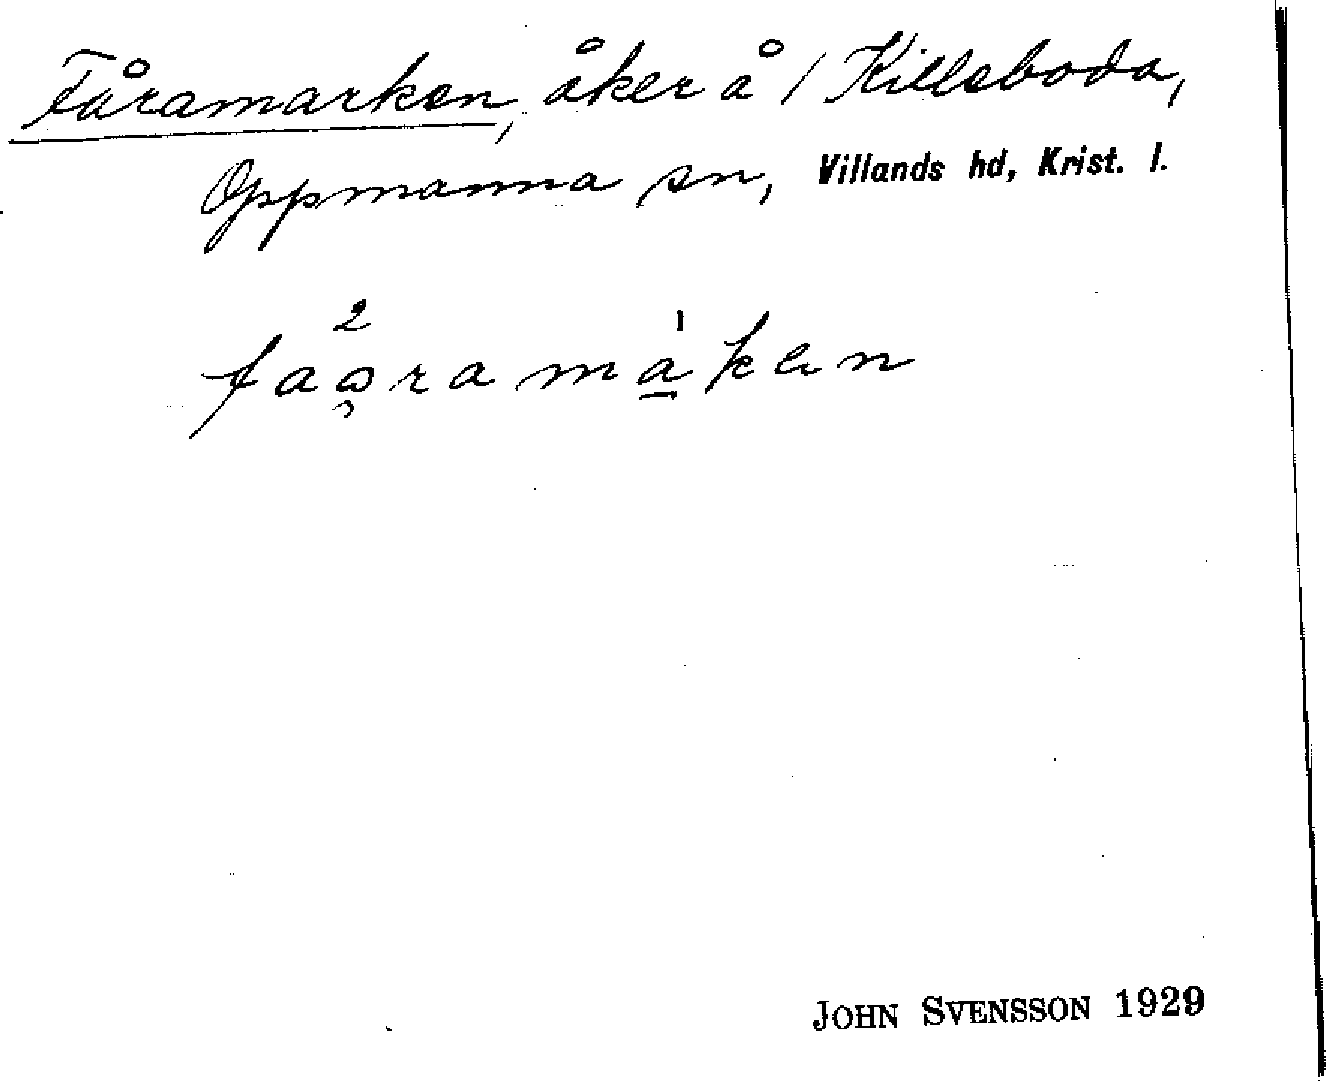 Fåramarken, åker å / Killeboda,
Oppmanna sn, Villands hd, Krist. l.
2 1
JOHN SVENSSON 1929